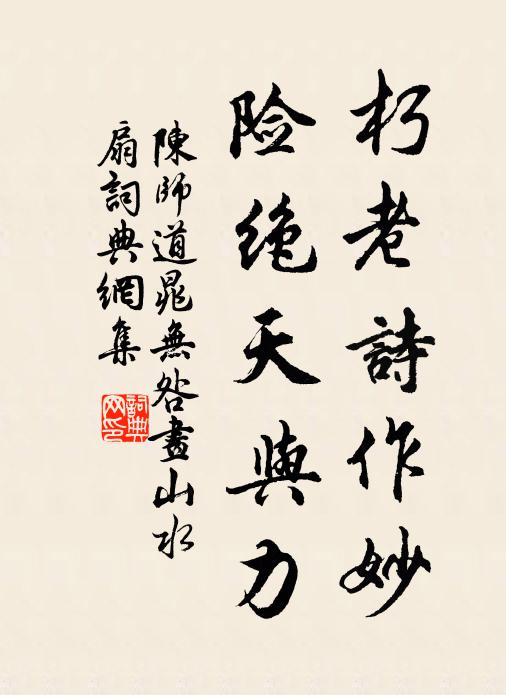 朽老詩作妙
险绝天與力
陳師道晁無咎畫山水
扇詞典網集
詞典网印